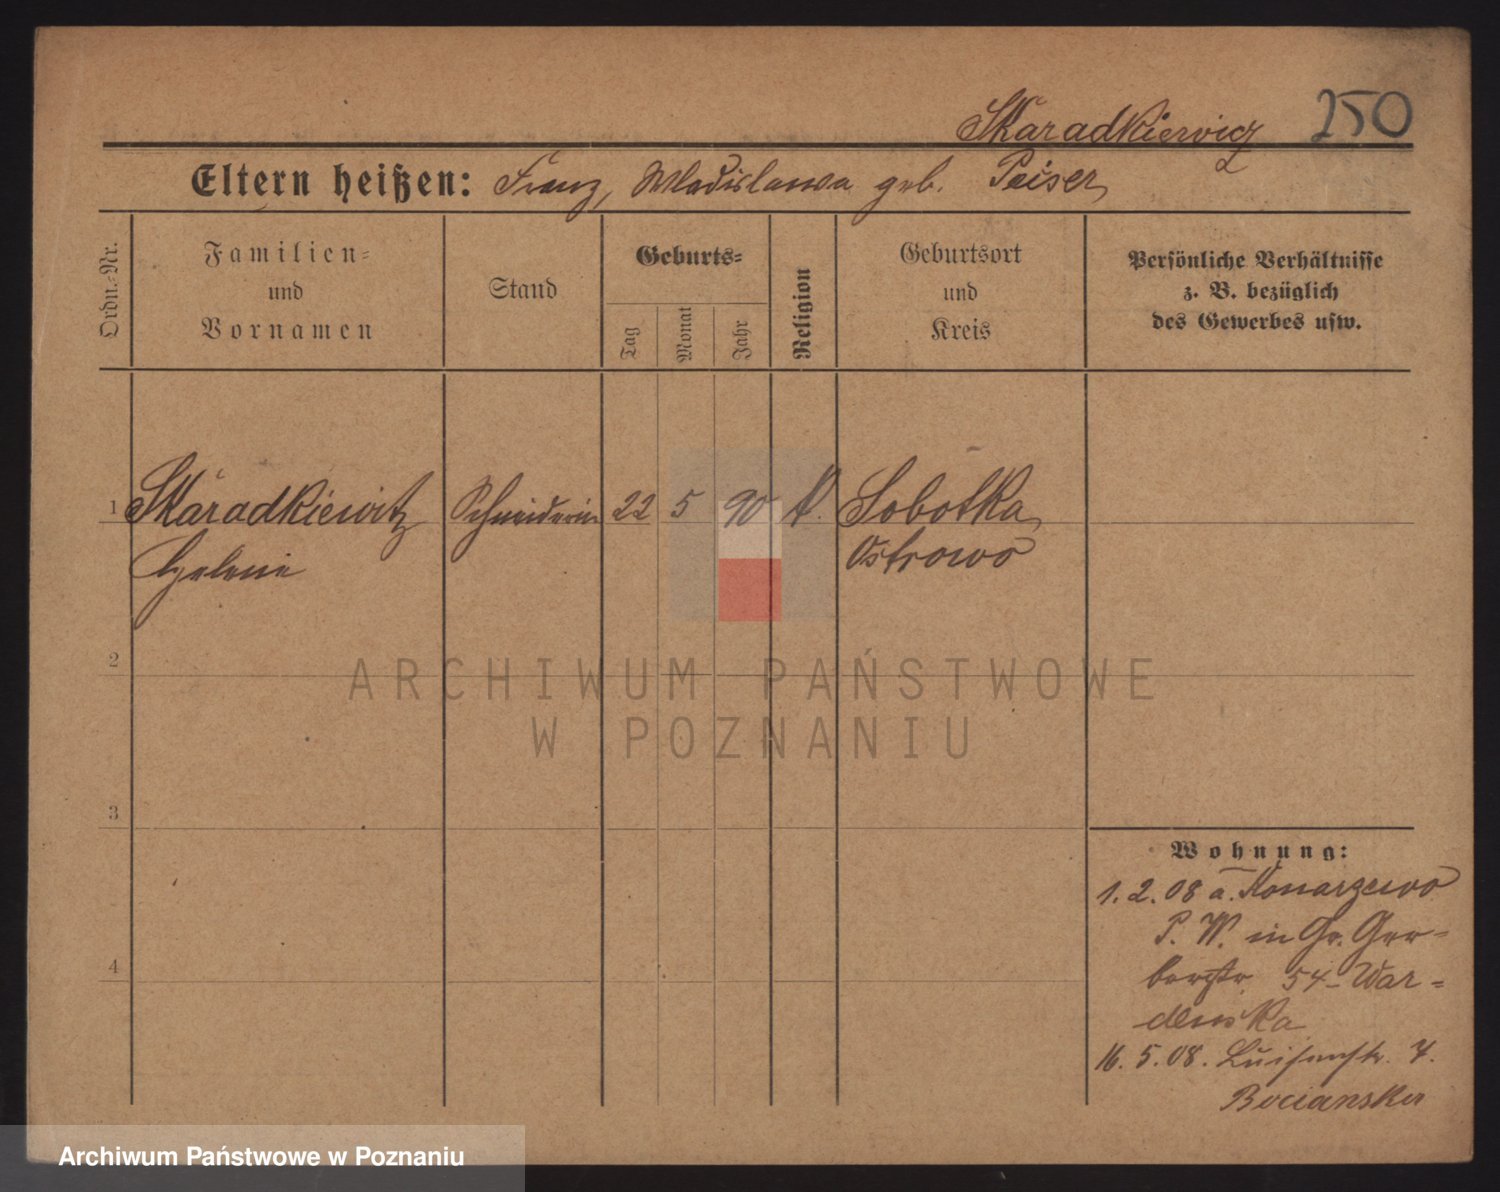 Skaradkiewicz 250
Eltern heißen: Franz, Wladislawa geb. Peiser
Ordn.-Nr.
Familien-
und
Vornamen
Stand
Geburts-
Tag
Monat
Jahr
Religion
Geburtsort
und
Kreis
Persönliche Verhältnisse
z. B. bezüglich
des Gewerbes usw.
1 Skaradkiewitz Schneiderin 22 5 90 k. Sobotka
Helene Ostrowo
2
ARCHIWUM PAŃSTWOWE
W POZNANIU
3
Wohnung:
1.2.08 a. Konarzewo
P. W. in Gr. Ger-
berstr. 54 War-
denska
16.5.08. Luisenstr. 7.
Bocianska
4
Archiwum Państwowe w Poznaniu